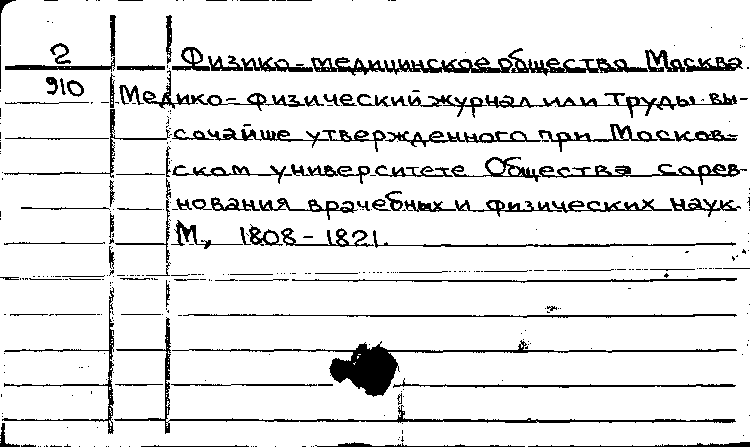 2 Физико-медицинское общество Москва.
910 Медико-физический журнал или Труды вы-
сочайше утвержденного при Москов-
ском университете Общества сорев-
нования врачебных и физических наук.
М., 1808-1821.